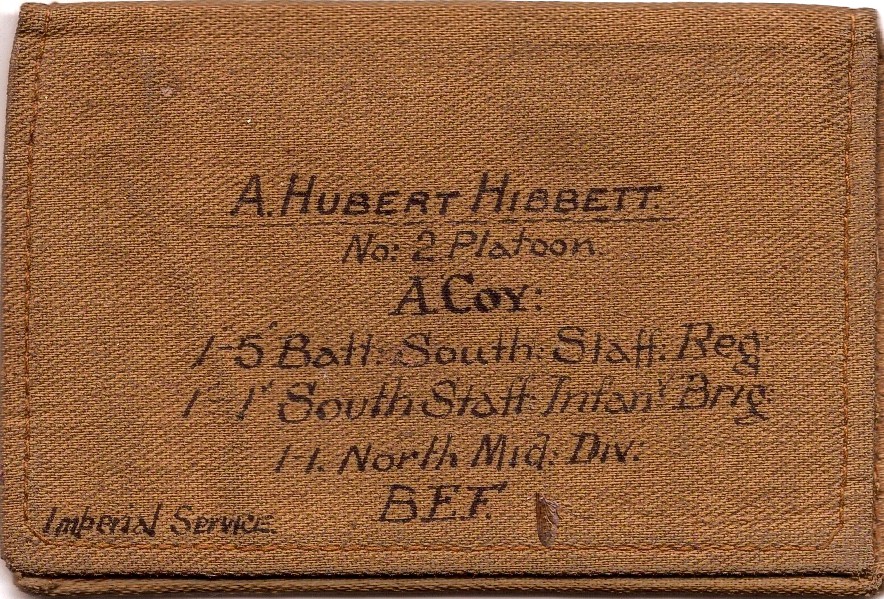 A. HUBERT HIBBETT.
No: 2 Platoon.
A Coy:
1-5 Batt: South: Staff: Reg:
1-1 South Staff: Infany Brig:
1-1. North Mid: Div:
B.E.F.
Imperial Service.